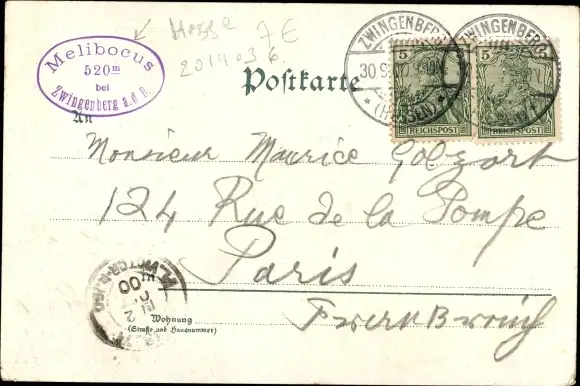 Melibocus
520m
bei
Zwingenberg a.d.B.
Hesse 7€
2014036
Postkarte
ZWINGENBERG
30.9.
(HESSEN)
ZWINGENBERG
(HESSEN)
5
REICHSPOST
5
REICHSPOST
An
Monsieur Maurice
124 Rue de la Pompe
Paris
00
Wohnung
(Straße und Hausnummer)